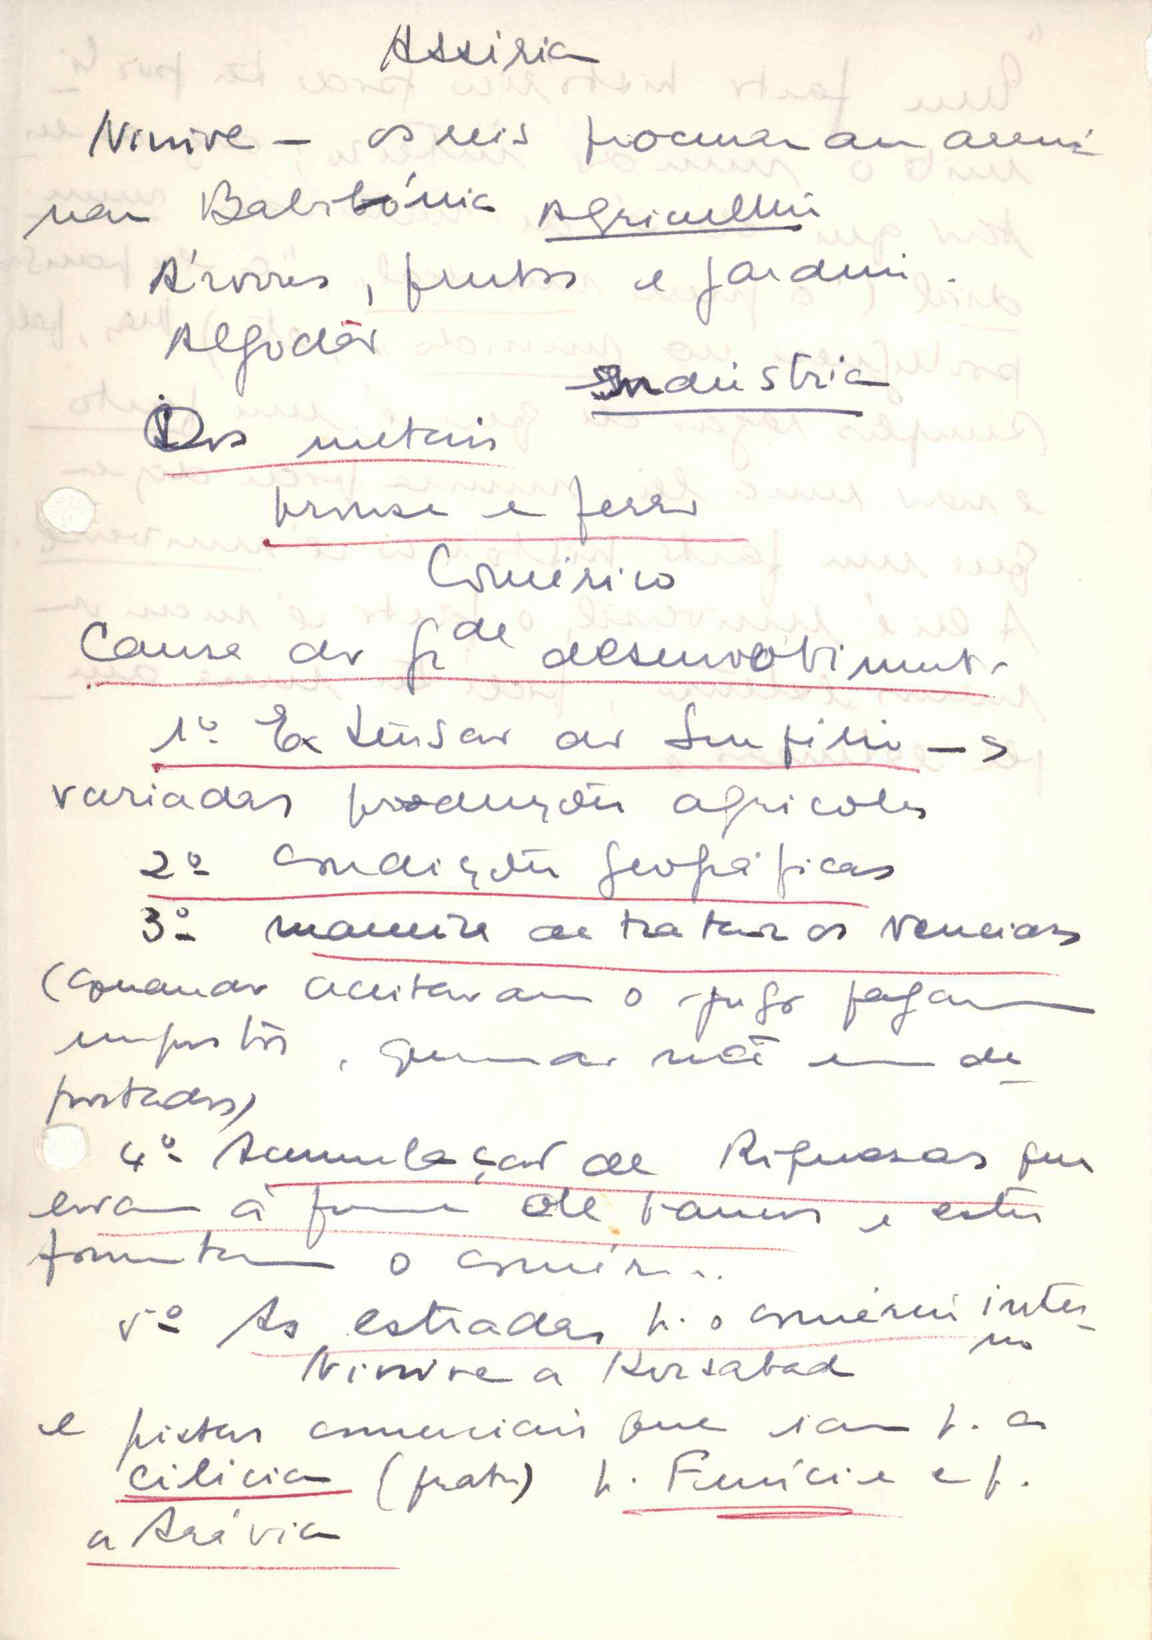 Assiria
Ninive – os reis procuravam arrui
nar Babilónia Agricultura
Árvores, frutos e jardins.
Algodão
Indústria
Dos metais
bronse e ferro
Comérico
Causa do gr de desenvolviment.
1º Extensão do Império –
variadas produções agricolas
2º Condições geográficas
3º maneira de tratar os vencidos
(quando aceitavam o jugo pagavam
impostos, quando não eram de
portados)
4º Acumulação de Riquesas que
levam à forma de bancos e estes
fomentam o comér...
5º As estradas p. o comércio inter
no
Ninive a Korsabad
e pistas comerciais que iam p. a
cilicia (prata) p. Fenícia e p.
a Arávia